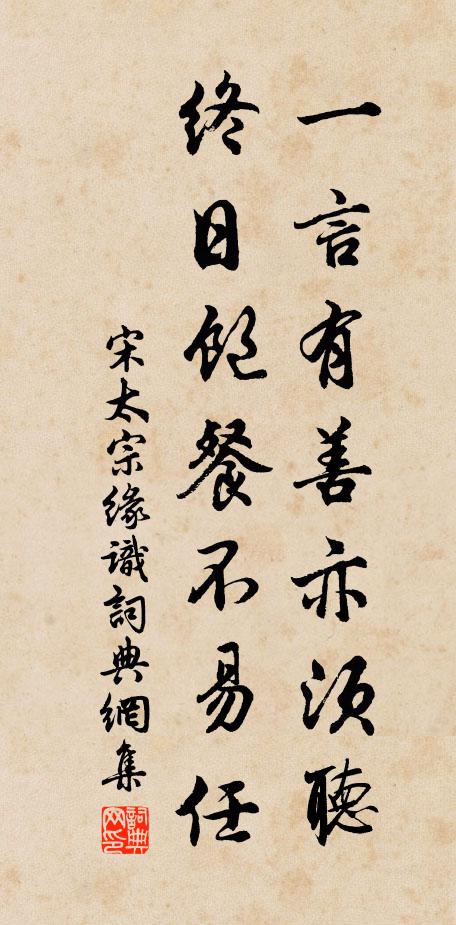 一言有善亦須聽
終日飽餐不易任
宋太宗緣識詞典網集
詞典網印